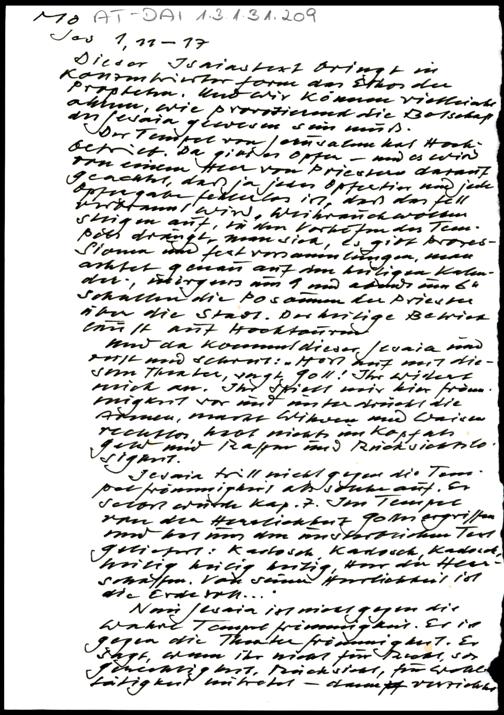 Mo AT-DAI 1.3.1.31.209
Jes 1,11-17
Dieser Isaiastext bringt in
konzentrierter form das Ethos der
Propheten. Und wir können vielleicht
ahnen, wie provozierend die Botschaft
des Jesaia gewesen sein muß.
Der Tempel von Jerusalem hat Hoch-
betrieb. Da gibt es Opfer - und es wird
von einem Heer von Priestern darauf
geachtet, daß ja jedes Opfertier und jede
Opfergabe fehlerlos ist, daß das fell
verbrannt wird, Weihrauchwolken
steigen auf, in den Vorhöfen des Tem-
pels drängt man sich, es gibt Prozes-
sionen und festversammlungen, man
achtet genau auf den heiligen Kalen-
der, morgens um 9 und abends um 6
schallen die Posaunen der Priester
über die Stadt. Der heilige Betrieb
läuft auf Hochtouren
Und da kommt dieser Jesaia und
ruft und schreit: "Hört auf mit die-
sem Theater, sagt Gott! Ihr widert
mich an. Ihr spielt mir hier fröm-
migkeit vor und unterdrückt die
Armen, macht Witwen und Waisen
rechtlos, habt nichts im Kopf als
Geld und Raffen und Rücksichtslo-
sigkeit.
Jesaia tritt nicht gegen die Tem-
pelfrömmigkeit als solche auf. Er
selbst wurde Kap. 7. Im Tempel
von der Herrlichkeit Gottes ergriffen
und hat uns den unsterblichen Text
geliefert: Kadosch, Kadosch, Kadosch,
heilig heilig heilig, Herr der Heer-
scharen. Von seiner Herrlichkeit ist
die Erde voll..."
Nein Jesaia ist nicht gegen die
wahre Tempelfrömmigkeit. Er ist
gegen die Theaterfrömmigkeit. Er
sagt, wenn ihr nicht für Recht, so
Gerechtigkeit, Rücksicht, für Wohl-
tätigkeit eintretet - dann verzichtet